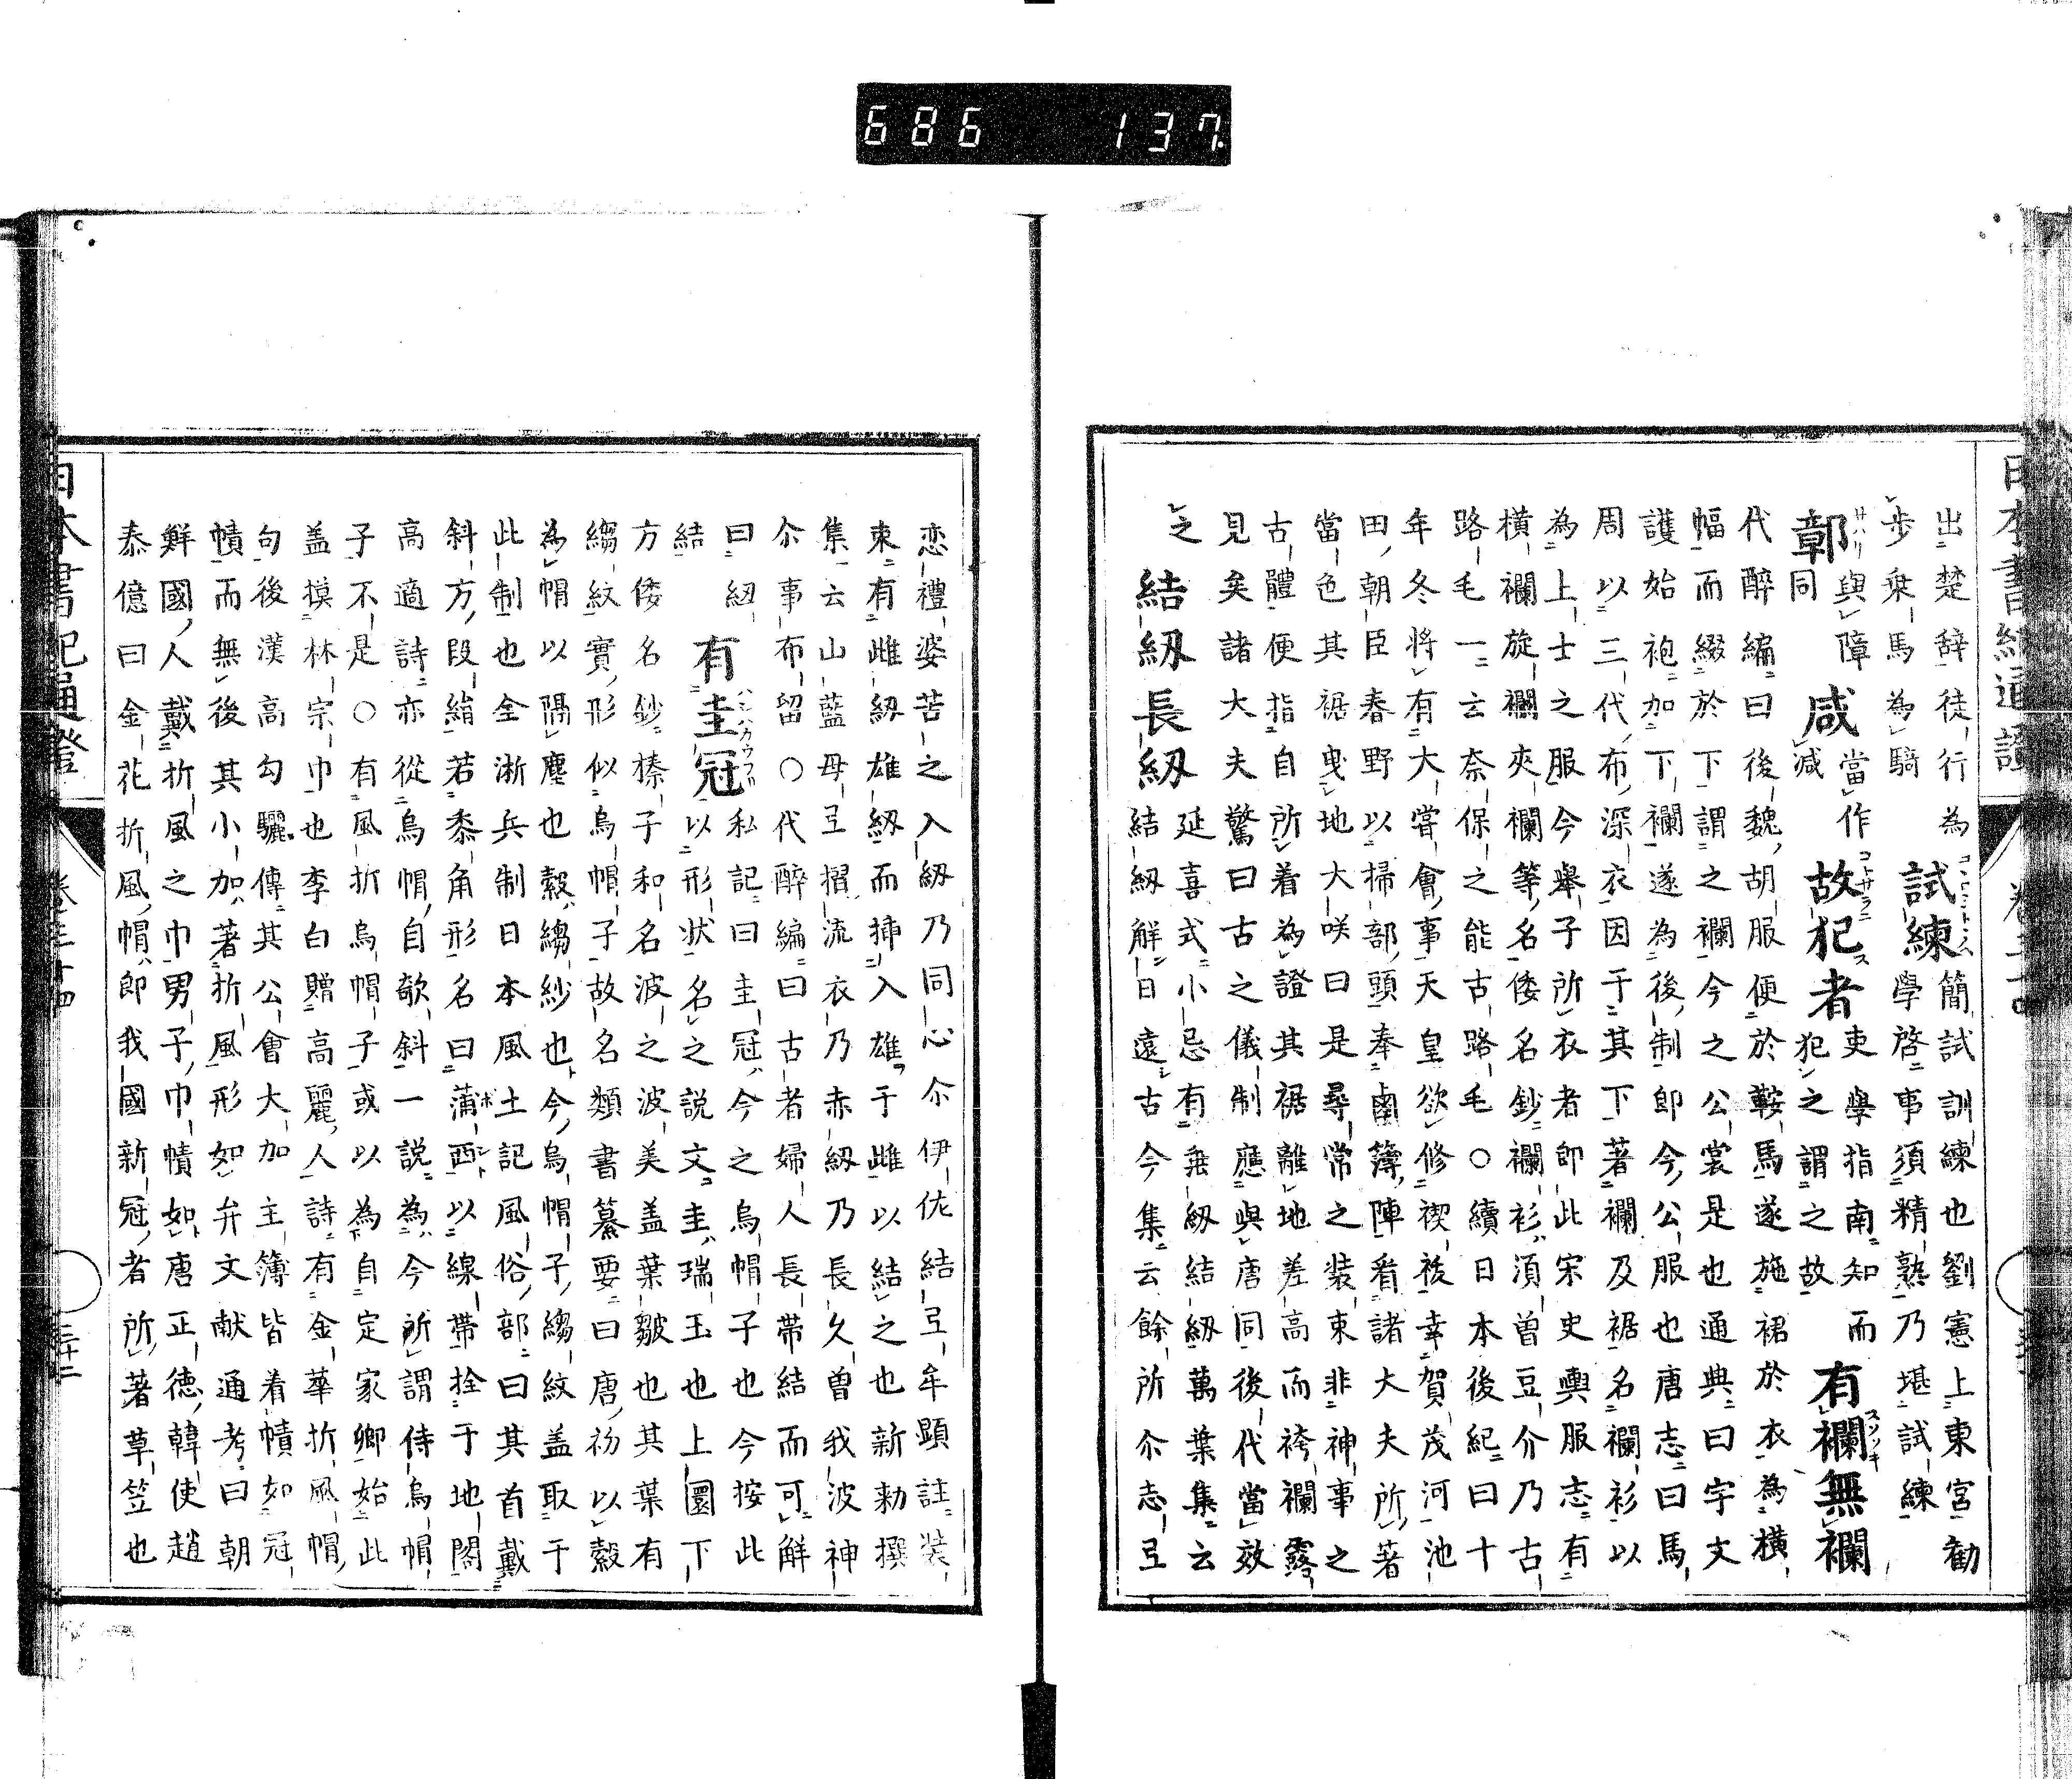 686 137
出楚辭徒行為
步乗馬為騎
試練
簡試訓練也劉憲上東宮勸
學啓事須精熟乃堪試練
鄣
與障
同
咸
當作
減
故犯者
吏學指南知而
犯之謂之故
有襴無襴
代醉編曰後魏胡服便於鞍馬遂施裙於衣為橫
幅而綴於下謂之襴今之公裳是也通典曰宇文
護始袍加下襴遂為後制即今公服也唐志曰馬
周以三代布深衣因于其下著襴及裾名襴衫以
為上士之服今舉子所衣者即此宋史輿服志有
橫襴旋襴夾襴等名倭名鈔襴衫須曽豆介乃古
路毛一云奈保之能古路毛〇續日本後紀曰十
年冬將有大嘗會事天皇欲修禊祓幸賀茂河池
田朝臣春野以掃部頭奉鹵簿陣看諸大夫所著
當色其裾曳地大咲曰是尋常之裝束非神事之
古體便指自所着為證其裾離地差高而袴襴露
見矣諸大夫驚曰古之儀制應與唐同後代當效
之
結紐長紐
延喜式小忌有垂紐結紐萬葉集云
結紐解日遠古今集云餘所尒志弖
恋禮婆苦之入紐乃同心尒伊佐結弖牟顕註裝
束有雌紐雄紐而挿入雄于雌以結之也新勅撰
集云山藍母弖摺流衣乃赤紐乃長久曽我波神
尒事布留〇代醉編曰古者婦人長帶結而可解
曰紐
有圭冠
私記曰圭冠今之烏帽子也今按此
以形狀名之説文圭瑞玉也上圜下
結
方倭名鈔榛子和名波之波美盖葉皺也其葉有
縐紋實形似烏帽子故名類書纂要曰唐初以縠
為帽以隔塵也縠縐紗也今烏帽子縐紋盖取于
此制也全淅兵制日本風土記風俗部曰其首戴
斜方段絹若黍角形名曰蒲西以線帶拴于地閣
高適詩亦從烏帽自欹斜一説為今所謂侍烏帽
子不是〇有風折烏帽子或以為自定家卿始此
盖摸林宗巾也李白贈高麗人詩有金華折風帽
句後漢高勾驪傳其公會大加主簿皆着幘如冠
幘而無後其小加著折風形如弁文献通考曰朝
鮮國人戴折風之巾男子巾幘如唐正德韓使趙
泰億曰金花折風帽即我國新冠者所著草笠也
日本書紀通證
三十二